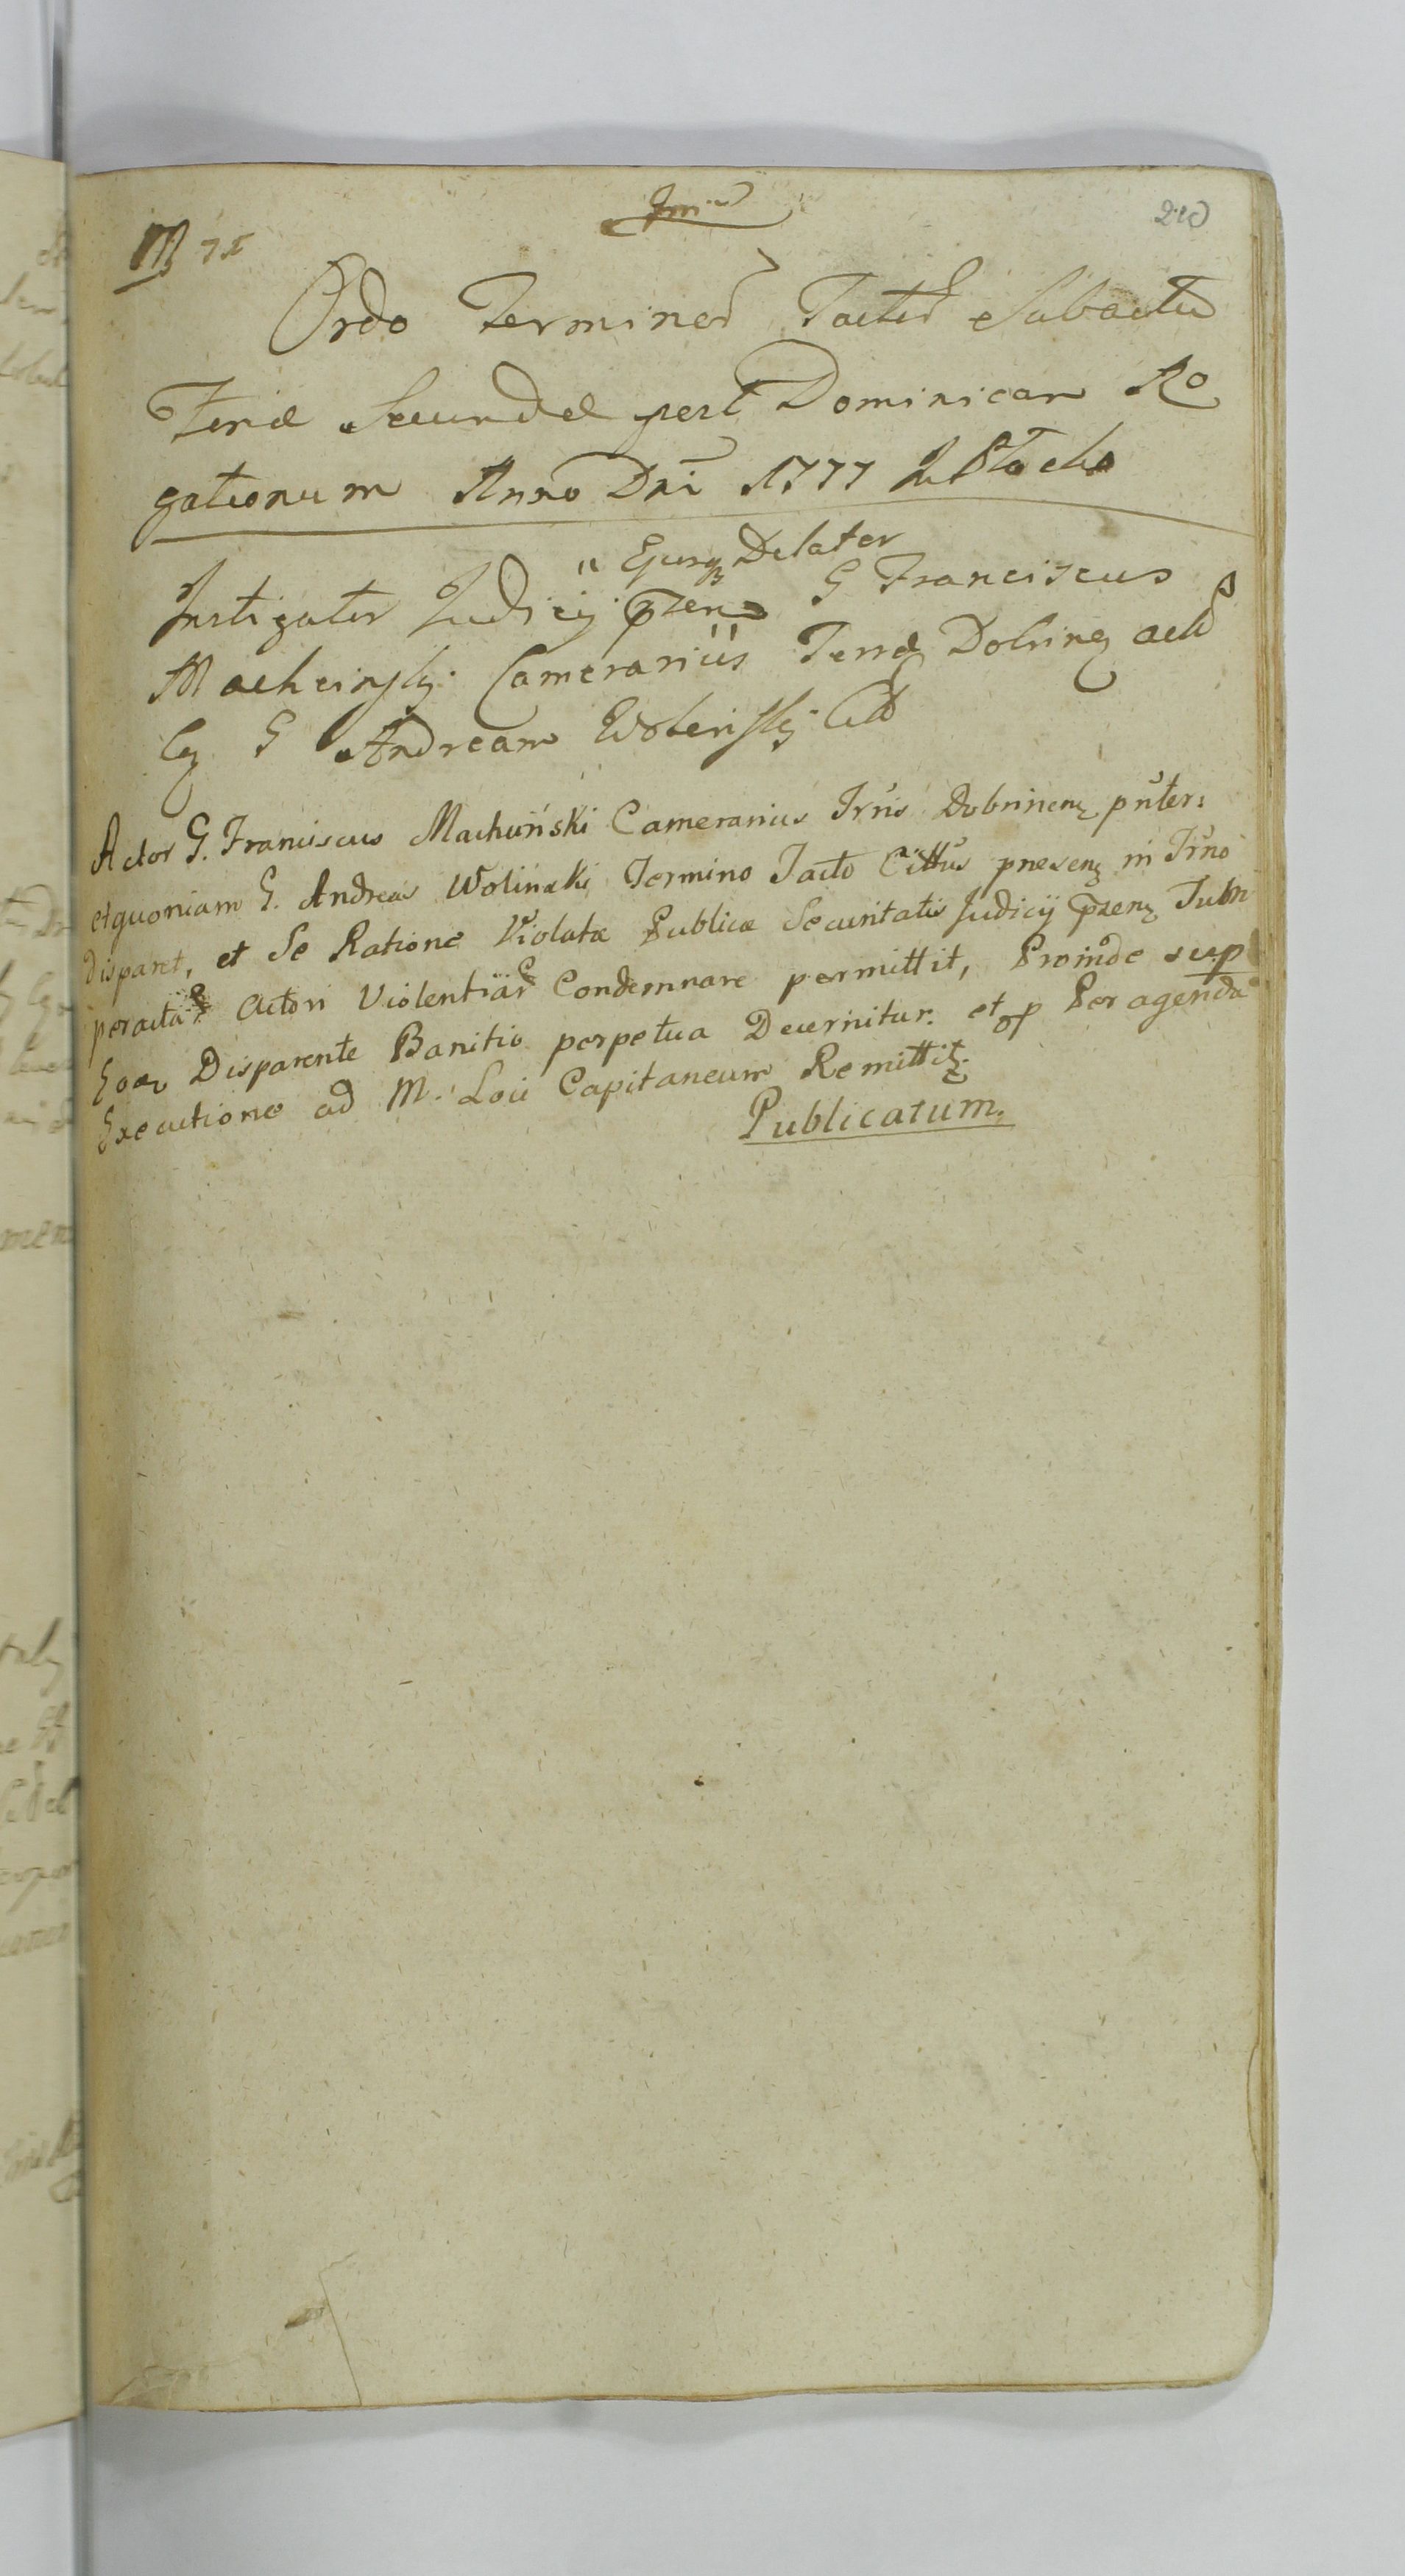 210
75
Ordo Terminor Tactor Sub actu
Feriæ Secundæ post Dominicam Ro
gationum Anno Dni 1777
" Ejusq Delator
Instigator Judicij pzen G Franciscus
Machcinskij Camerarius Terræ Dobrinen
G Andream Wolinskij Citt
Actor G. Franciscus Machciński Camerarius Trris Dobrinenę pnter:
et quoniam G. Andreas Woliński Termino Tacto Cittus presenę in Trno
disparet, et se Ratione Violatæ Publicæ Securitatis Judicij pzenę
peractar Actori Violentiar Condemnare permittit, Proinde sup
Eoą Disparente Banitio perpetua Decernitur. et p Peragenda
Executione ad M. Loci Capitaneum Remittitę.
Publicatum.